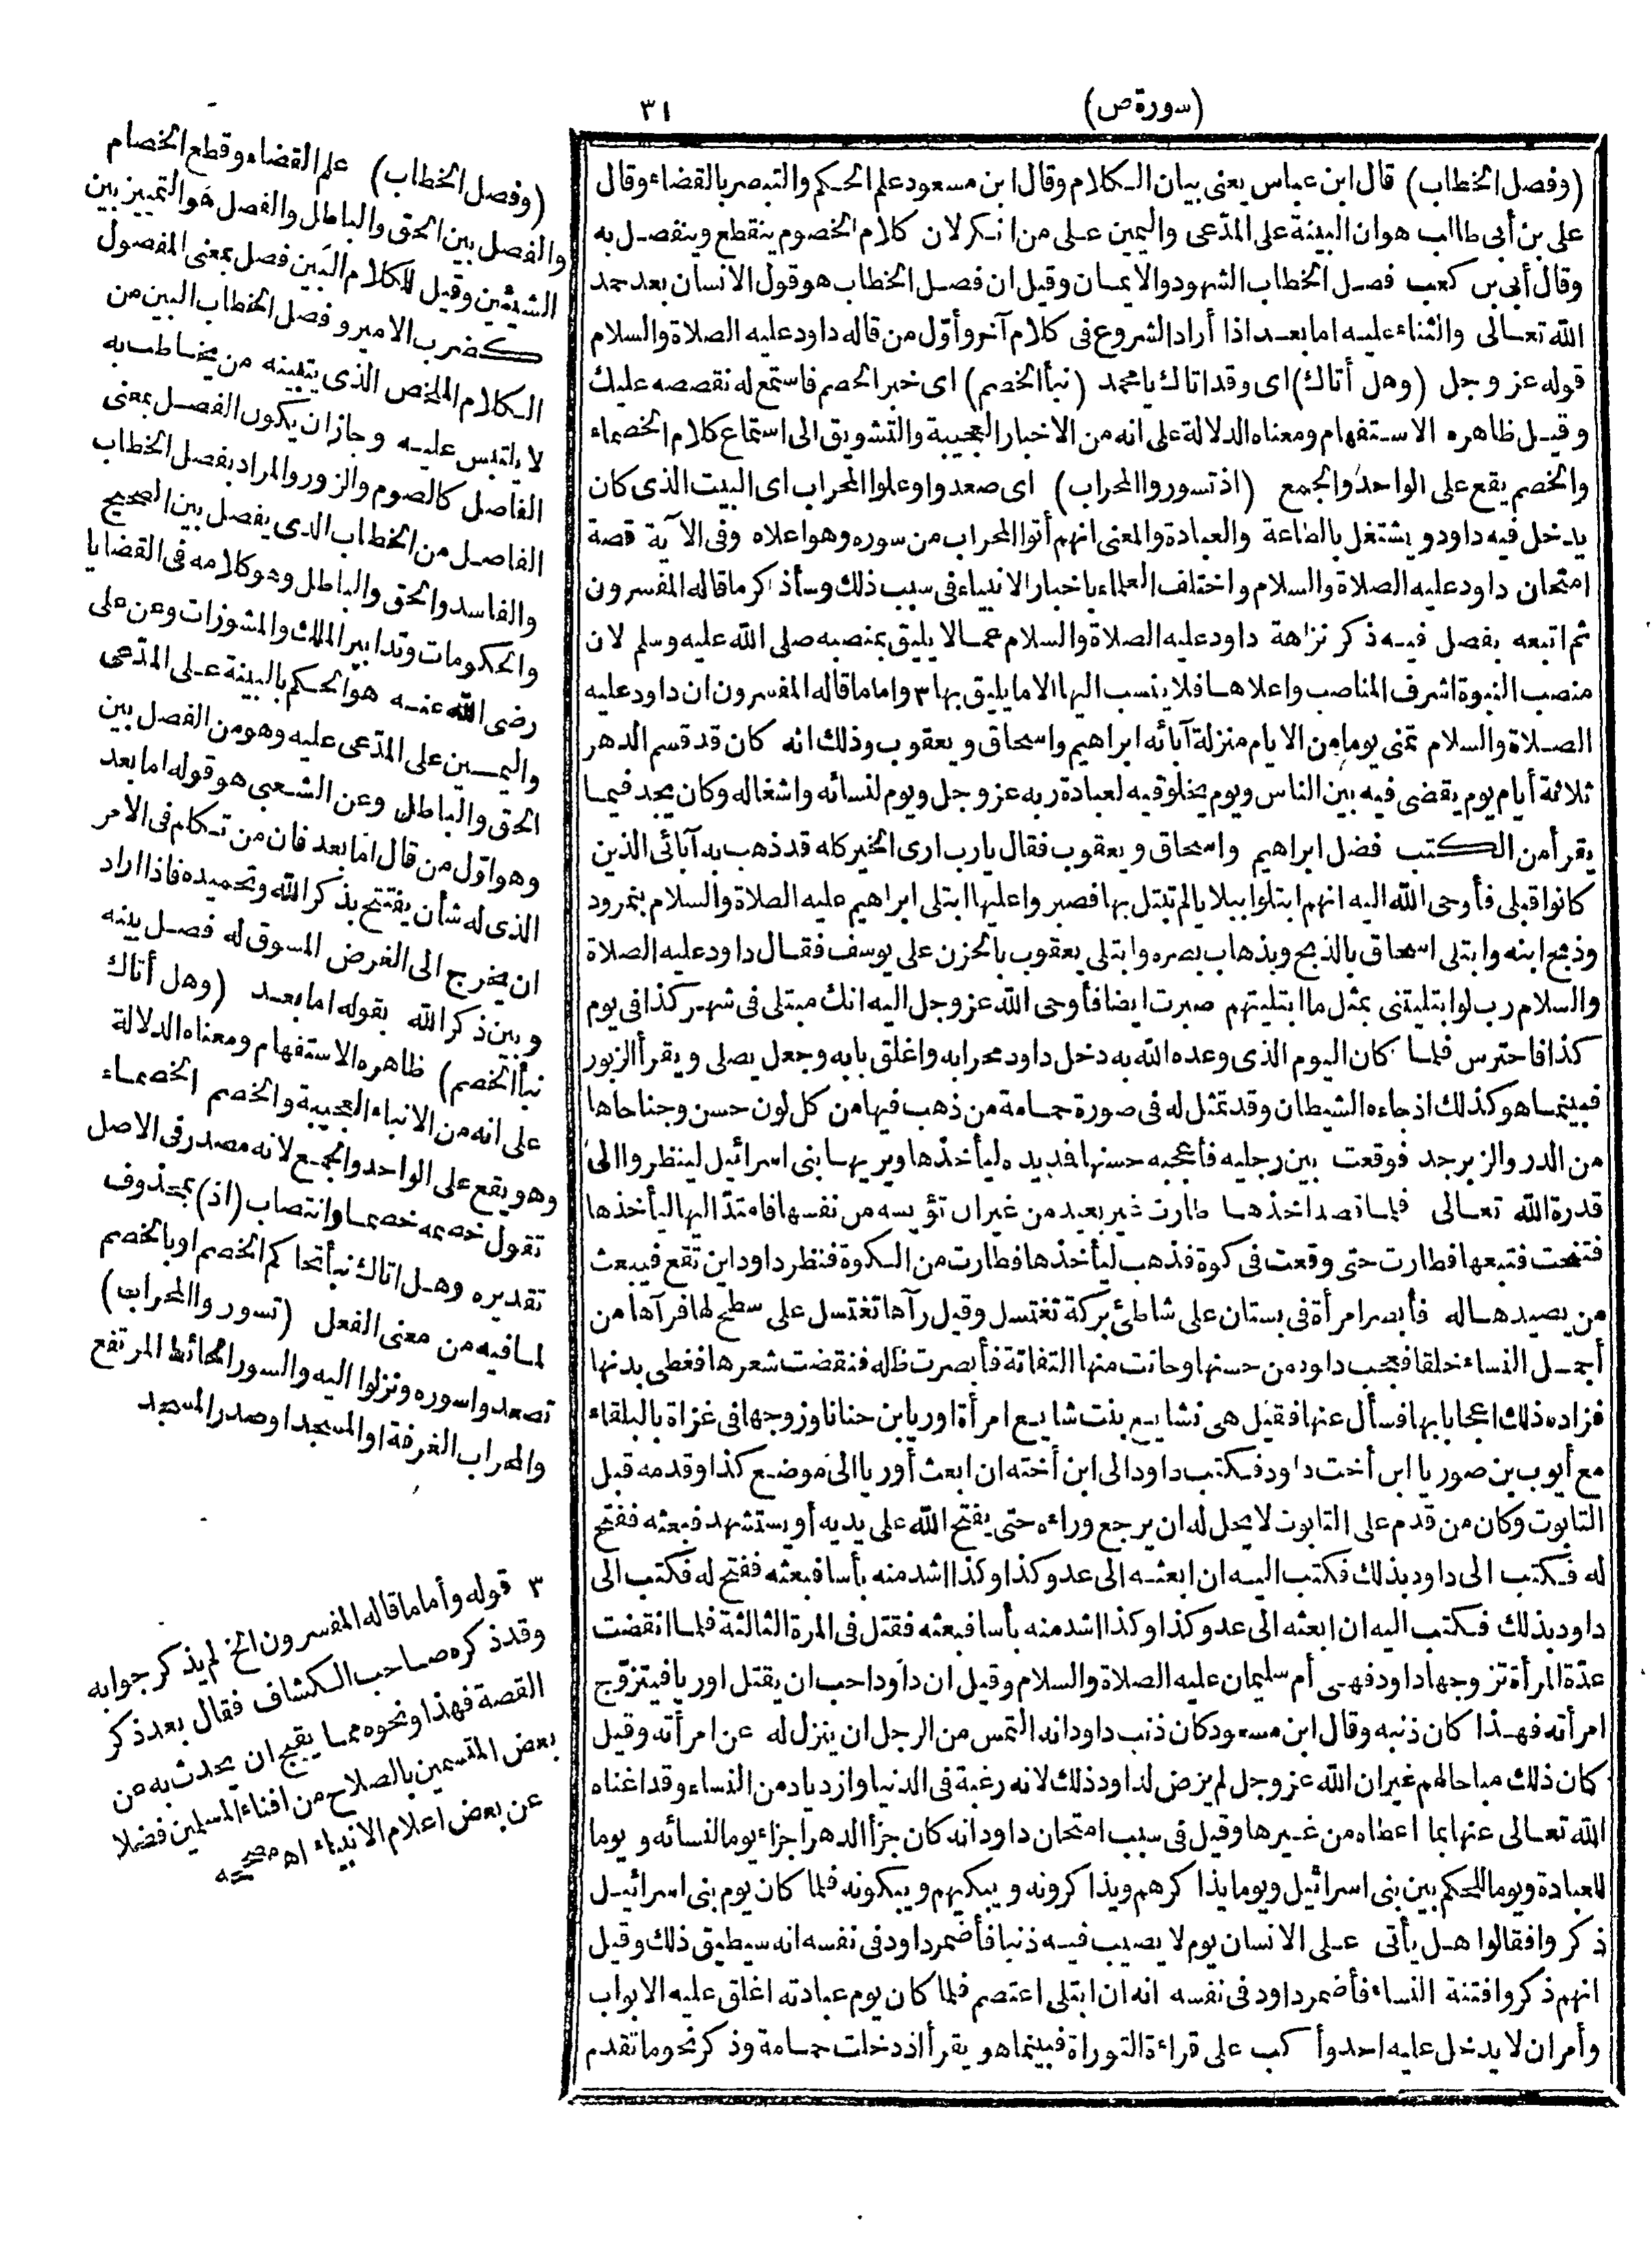 (سورة ص)
٣١
(وفصل الخطاب) قال ابن عباس يعنى بيان الكلام وقال ابن مسعود علم الحكم والتبصر بالقضاء وقال
على بن أبى طالب هو ان البينة على المدّعى واليمين على من انكر لان كلام الخصوم ينقطع وينفصل به
وقال أبى بن كعب فصل الخطاب الشهود والايمان وقيل ان فصل الخطاب هو قول الانسان بعد حمد
الله تعالى والثناء عليه اما بعد اذا أراد الشروع فى كلام آخر وأوّل من قاله داود عليه الصلاة والسلام
قوله عز وجل (وهل أتاك) اى وقد اتاك يا محمد (نبأ الخصم) اى خبر الخصم فاستمع له نقصصه عليك
وقيل ظاهره الاستفهام ومعناه الدلالة على انه من الاخبار العجيبة والتشويق الى استماع كلام الخصماء
والخصم يقع على الواحد والجمع (اذ تسوروا المحراب) اى صعدوا وعلوا المحراب اى البيت الذى كان
يدخل فيه داود ويشتغل بالطاعة والعبادة والمعنى انهم أتوا المحراب من سوره وهو اعلاه وفى الآية قصة
امتحان داود عليه الصلاة والسلام واختلف العلماء باخبار الانبياء فى سبب ذلك وسأذكر ما قاله المفسرون
ثم اتبعه بفصل فيه ذكر نزاهة داود عليه الصلاة والسلام عمالا يليق بمنصبه صلى الله عليه وسلم لان
منصب النبوة اشرف المناصب واعلاها فلا ينسب اليها الا ما يليق بها ٣ واما ما قاله المفسرون ان داود عليه
الصلاة والسلام تمنى يوما من الايام منزلة آبائه ابراهيم واسحاق ويعقوب وذلك انه كان قد قسم الدهر
ثلاثة أيام يوم يقضى فيه بين الناس ويوم يخلو فيه لعبادة ربه عز وجل ويوم لنسائه واشغاله وكان يجد فيما
يقرأ من الكتب فضل ابراهيم واسحاق ويعقوب فقال يارب ارى الخير كله قد ذهب به آبائى الذين
كانوا قبلى فأوحى الله اليه انهم ابتلوا ببلايا لم تبتل بها فصبروا عليها ابتلى ابراهيم عليه الصلاة والسلام بنمرود
وذبح ابنه وابتلى اسحاق بالذبح وبذهاب بصره وابتلى يعقوب بالحزن على يوسف فقال داود عليه الصلاة
والسلام رب لو ابتليتنى بمثل ما ابتليتهم صبرت ايضا فأوحى الله عز وجل اليه انك مبتلى فى شهر كذا فى يوم
كذا فاحترس فلما كان اليوم الذى وعده الله به دخل داود محرابه واغلق بابه وجعل يصلى ويقرأ الزبور
فبينما هو كذلك اذ جاءه الشيطان وقد تمثل له فى صورة حمامة من ذهب فيها من كل لون حسن وجناحاها
من الدر والزبرجد فوقعت بين رجليه فأعجبه حسنها فمد يده ليأخذها ويريها بنى اسرائيل لينظروا الى
قدرة الله تعالى فلما قصد اخذها طارت غير بعيد من غير ان تؤيسه من نفسها فامتدّ اليها ليأخذها
فتنحت فتبعها فطارت حتى وقعت فى كوة فذهب ليأخذها فطارت من الكوة فنظر داود اين تقع فيبعث
من يصيدها له فأبصر امرأة فى بستان على شاطئ بركة تغتسل وقيل رآها تغتسل على سطح لها فرآها من
أجمل النساء خلقا فعجب داود من حسنها وحانت منها التفاتة فأبصرت ظله فنقضت شعرها فغطى بدنها
فزاده ذلك اعجابا بها فسأل عنها فقيل هى تشايع بنت شايع امرأة اوريا بن حنانا وزوجها فى غزاة بالبلقاء
مع أيوب بن صوريا ابن أخت داود فكتب داود الى ابن أخته ان ابعث أوريا الى موضع كذا وقدمه قبل
التابوت وكان من قدم على التابوت لا يحل له ان يرجع وراءه حتى يفتح الله على يديه أو يستشهد فبعثه ففتح
له فكتب الى داود بذلك فكتب اليه ان ابعثه الى عدو كذا وكذا اشد منه بأسا فبعثه ففتح له فكتب الى
داود بذلك فكتب اليه ان ابعثه الى عدو كذا وكذا اشد منه بأسا فبعثه فقتل فى المرة الثالثة فلما انقضت
عدّة المرأة تزوجها داود فهى أم سليمان عليه الصلاة والسلام وقيل ان داود احب ان يقتل اوريا فيتزوّج
امرأته فهذا كان ذنبه وقال ابن مسعود كان ذنب داود انه التمس من الرجل ان ينزل له عن امرأته وقيل
كان ذلك مباحا لهم غير ان الله عز وجل لم يرض لداود ذلك لانه رغبة فى الدنيا وازدياد من النساء وقد اغناه
الله تعالى عنها بما اعطاه من غيرها وقيل فى سبب امتحان داود انه كان جزأ الدهر اجزاء يوما لنسائه ويوما
للعبادة ويوما للحكم بين بنى اسرائيل ويوما يذاكرهم ويذاكرونه ويبكيهم ويبكونه فلما كان يوم بنى اسرائيل
ذكروا فقالوا هل يأتى على الانسان يوم لا يصيب فيه ذنبا فأضمر داود فى نفسه انه سيطيق ذلك وقيل
انهم ذكروا فتنة النساء فأضمر داود فى نفسه انه ان ابتلى اعتصم فلما كان يوم عبادته اغلق عليه الابواب
وأمر ان لا يدخل عليه احد وأكب على قراءة التوراة فبينما هو يقرأ اذ دخلت حمامة وذكر نحو ما تقدم
(وفصل الخطاب) علم القضاء وقطع الخصام
والفصل بين الحق والباطل والفصل هو التمييز بين
الشيئين وقيل للكلام البين فصل بمعنى المفصول
كضرب الامير و فصل الخطاب البين من
الكلام الملخص الذى يتبينه من يخاطب به
لا يلتبس عليه وجاز ان يكون الفصل بمعنى
الفاصل كالصوم والزور والمراد بفصل الخطاب
الفاصل من الخطاب الذى يفصل بين الصحيح
والفاسد والحق والباطل وهو كلامه فى القضايا
والحكومات وتدابير الملك والمشورات وعن على
رضى الله عنه هو الحكم بالبينة على المدّعى
واليمين على المدّعى عليه وهو من الفصل بين
الحق والباطل وعن الشعبى هو قوله اما بعد
وهو اوّل من قال اما بعد فان من تكلم فى الامر
الذى له شأن يفتتح بذكر الله وتحميده فاذا اراد
ان يخرج الى الغرض المسوق له فصل بينه
وبين ذكر الله بقوله اما بعد (وهل أتاك
نبأ الخصم) ظاهره الاستفهام ومعناه الدلالة
على انه من الانباء العجيبة والخصم الخصماء
وهو يقع على الواحد والجمع لانه مصدر فى الاصل
تقول خصمه خصما وانتصاب (اذ) بمحذوف
تقديره وهل اتاك نبأ تحاكم الخصم او بالخصم
لما فيه من معنى الفعل (تسوروا المحراب)
تصعدوا سوره ونزلوا اليه والسور الحائط المرتفع
والمحراب الغرفة او المسجد او صدر المسجد
٣ قوله وأما ما قاله المفسرون الخ لم يذكر جوابه
وقد ذكره صاحب الكشاف فقال بعد ذكر
القصة فهذا ونحوه مما يقبح ان يحدث به من
بعض المتسمين بالصلاح من افناء المسلمين فضلا
عن بعض اعلام الانبياء اه مصححه